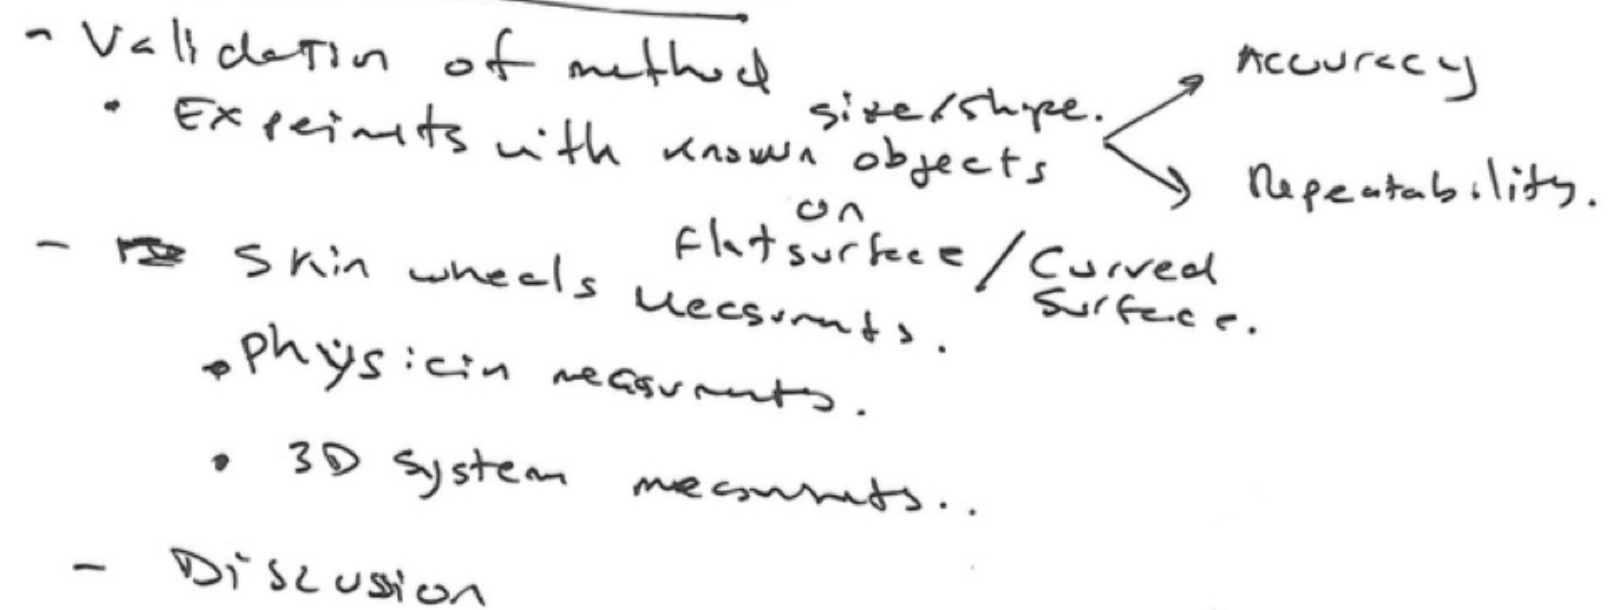 - Validation of method
• Experimets with known size/shape. objects
Accuracy
Repeatability.
on
flat surface / Curved
surface.
- Skin wheals Measurmts.
• Physicin measurmnts.
• 3D System measurmnts..
- Discussion